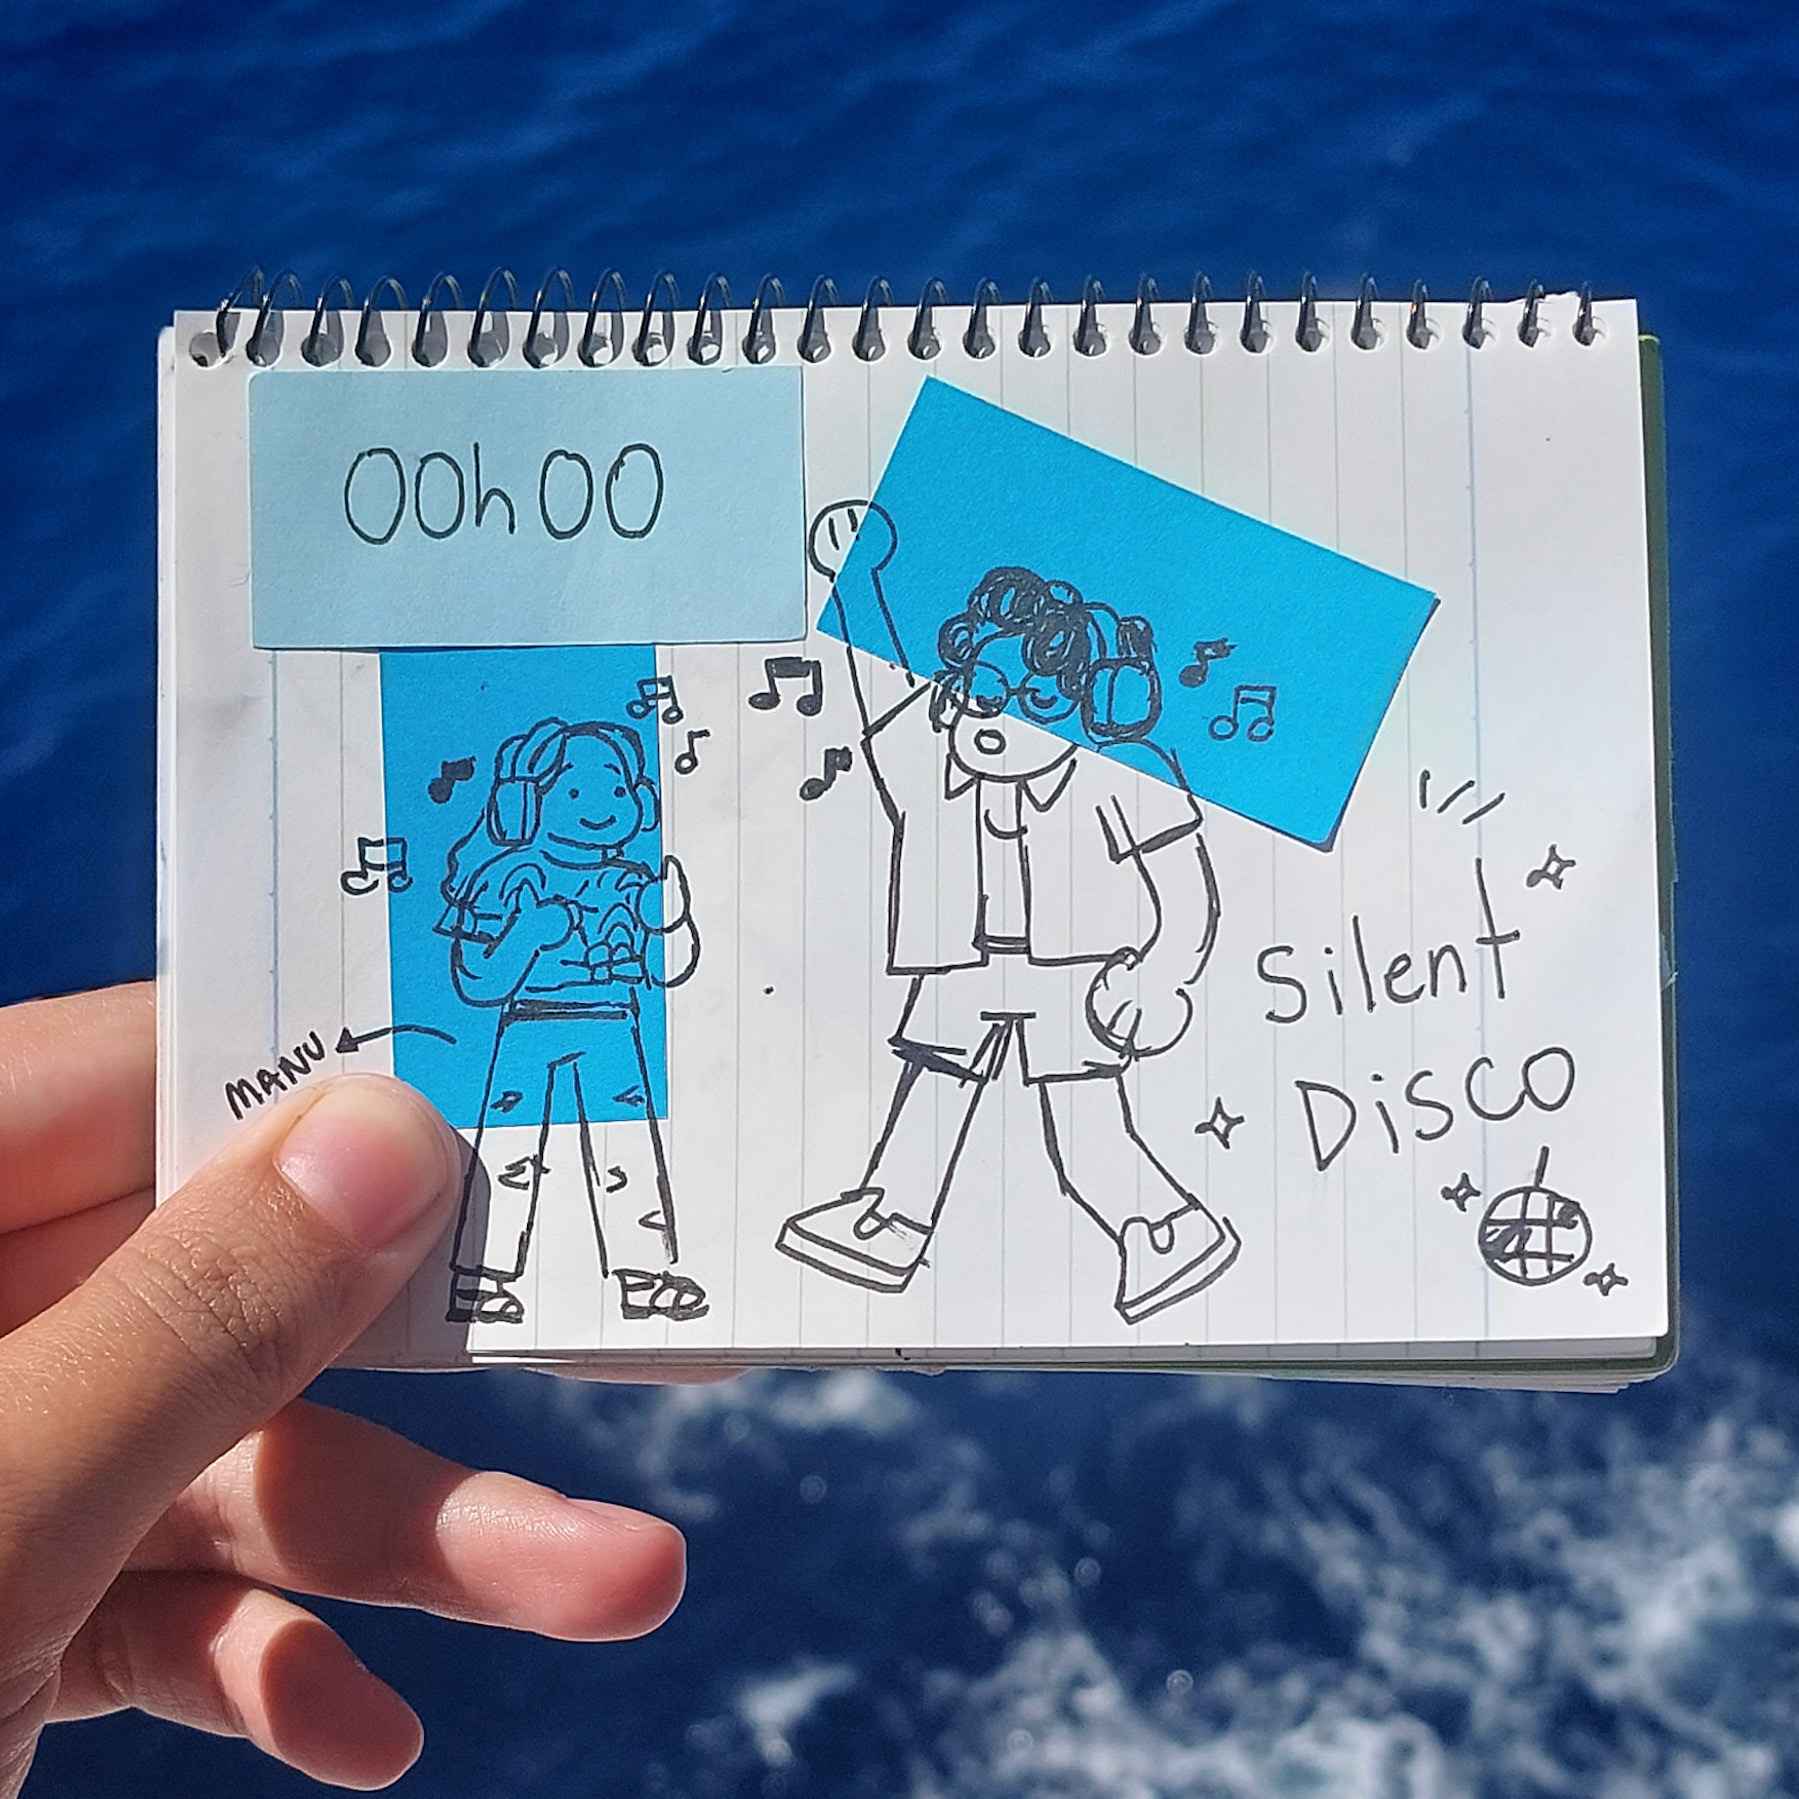 00h00
MANU
Silent
Disco